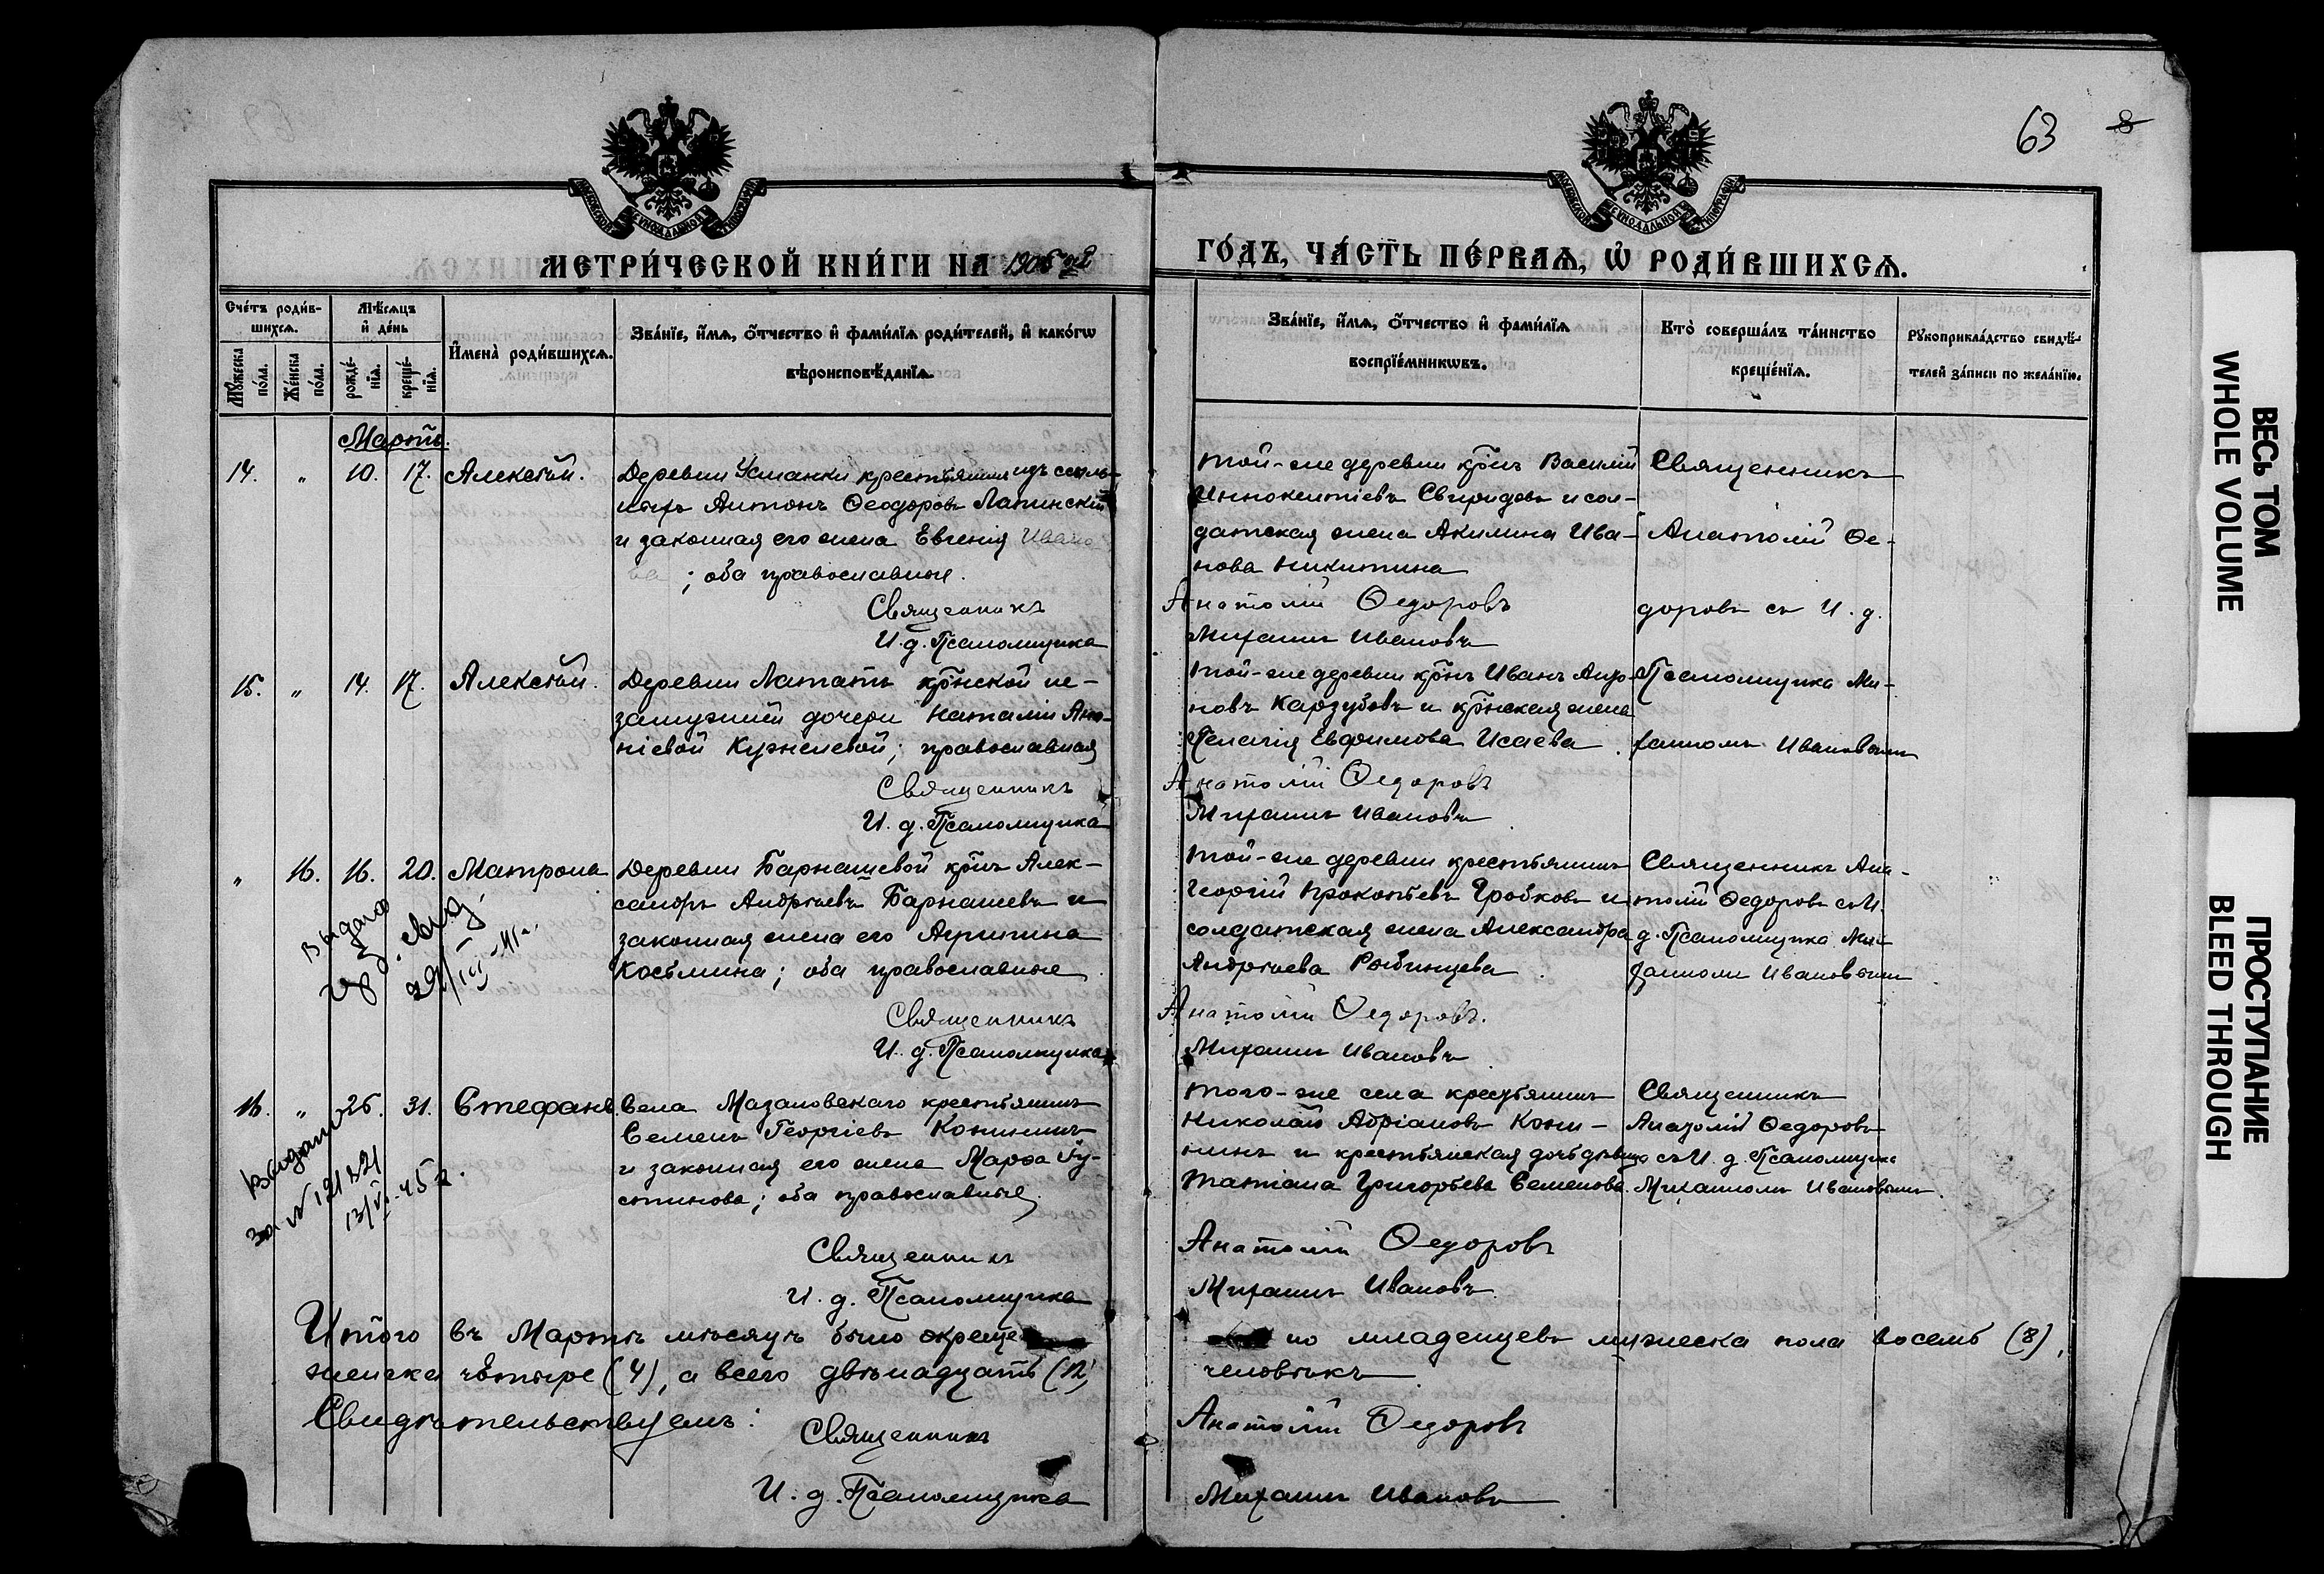 63 8
МОСКОВСКОЙ СѴНОДАЛЬНОЙ ТИПОГРАФІИ
МОСКОВСКОЙ СѴНОДАЛЬНОЙ ТИПОГРАФІИ
МЕТРИ́ЧЕСКОЙ КНИ́ГИ НА 1906 й
ГО́ДЪ, ЧА́СТЬ ПЕ́РВАѦ, Ѡ҆ РОДИ́ВШИХСѦ.
Сче́тъ роди́в-
шихсѧ.
Мꙋ́жеска по́ла.
Же́нска по́ла.
Мѣ́сѧцъ
и҆ де́нь
рожде́-
нїѧ.
креще́-
нїѧ.
И҆мена̀ роди́вшихсѧ.
Зва́нїе, и҆́мѧ, ѻ҆́тчество и҆ фами́лїѧ роди́телей, и҆ како́гѡ
вѣроисповѣ́данїѧ.
Зва́нїе, и҆́мѧ, ѻ҆́тчество и҆ фами́лїѧ
воспрїе́мникѡвъ.
Кто̀ соверша́лъ та́инство
креще́нїѧ.
Рꙋкоприкла́дство свидѣ́-
телей за́писи по жела́нїю.
Мартъ.
14. " 10. 17. Алексѣй.
Деревни Усманки крестьянинъ изъ ссыль-
ныхъ Антонъ Ѳеодоровъ Лапинскій
и законная его жена Евгенія Ивано
ва ; оба православные.
Священникъ
И. д. Псаломщика
той-же деревни кр̃нъ Василій
Иннокентіевъ Свиридовъ и сол-
датская жена Акилина Ива-
нова Никитина
Анатолій Ѳедоровъ
Михаилъ Ивановъ
Священникъ
Анатолій Ѳе-
доровъ съ И. д.
Псаломщика Ми-
хаиломъ Ивановымъ
15. " 14. 17. Алексѣй.
Деревни Лататъ кр̃нской не-
замужней дочери Наталіи Анто-
ніевой Кужелевой; православная
Священникъ
И. д. Псаломщика
той-же деревни кр̃нъ Иванъ
новъ Карзубовъ и кр̃нская жена
Пелагія Евфимова Исаева.
Анатолій Ѳедоровъ
Михаилъ Ивановъ
" 16. 16. 20. Матрона
Деревни Барнашевой кр̃нъ Алек-
сандръ Андреевъ Барнашевъ и
законная жена его Агрипина
Косьмина; оба православные.
Священникъ
И. д. Псаломщика
той-же деревни крестьянинъ
Георгій Прокопьевъ Гробковъ и
солдатская жена Александра
Андреева Рыбинцева.
Анатолій Ѳедоровъ.
Михаилъ Ивановъ
Священникъ Ана-
толій Ѳедоровъ съ И.
д. Псаломщика Ми-
хаиломъ Ивановымъ
Выдано
свид.
29/III-41 г.
16. " 26. 31. Стефанъ.
Села Мазаловскаго крестьянинъ
Семенъ Георгіевъ Конининъ
и законная его жена Марѳа Іу-
стинова; оба православные.
Священникъ
И. д. Псаломщика
того-же села крестьянинъ
Николай Адріановъ Кони-
нинъ и крестьянская дочь дѣвица
Татіана Григорьева Семенова.
Анатолій Ѳедоровъ
Михаилъ Ивановъ
Священникъ
Анатолій Ѳедоровъ
съ И. д. Псаломщика
Михаиломъ Ивановымъ.
Выдано
за №
13/VI-45 г.
Итого въ Мартѣ мѣсяцѣ было окреще но младенцевъ мужеска пола восемь (8),
женска четыре (4), а всего двѣнадцать (12) человѣкъ
Свидѣтельствуемъ:
Священникъ Анатолій Ѳедоровъ
И. д. Псаломщика Михаилъ Ивановъ
ВЕСЬ ТОМ
WHOLE VOLUME
ПРОСТУПАНИЕ
BLEED THROUGH